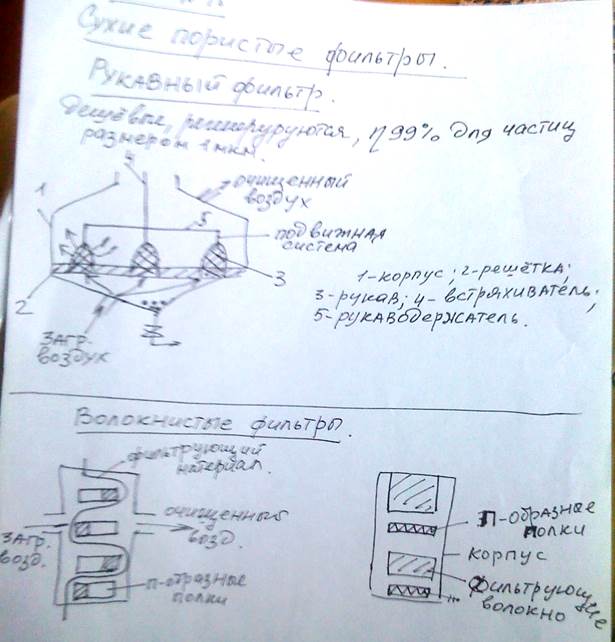 Сухие пористые фильтры.
Рукавный фильтр.
Дешёвые, регенерируются, η 99% для частиц
размером 1 мкм.
4
1
очищенный
воздух
5
подвижная
система
3
2
загр.
воздух
1-корпус; 2-решётка;
3-рукав; 4-встряхиватель;
5-рукаводержатель.
Волокнистые фильтры.
фильтрующий
материал.
загр.
возд.
очищенный
возд.
П-образные
полки
П-образные
полки
корпус
фильтрующее
волокно